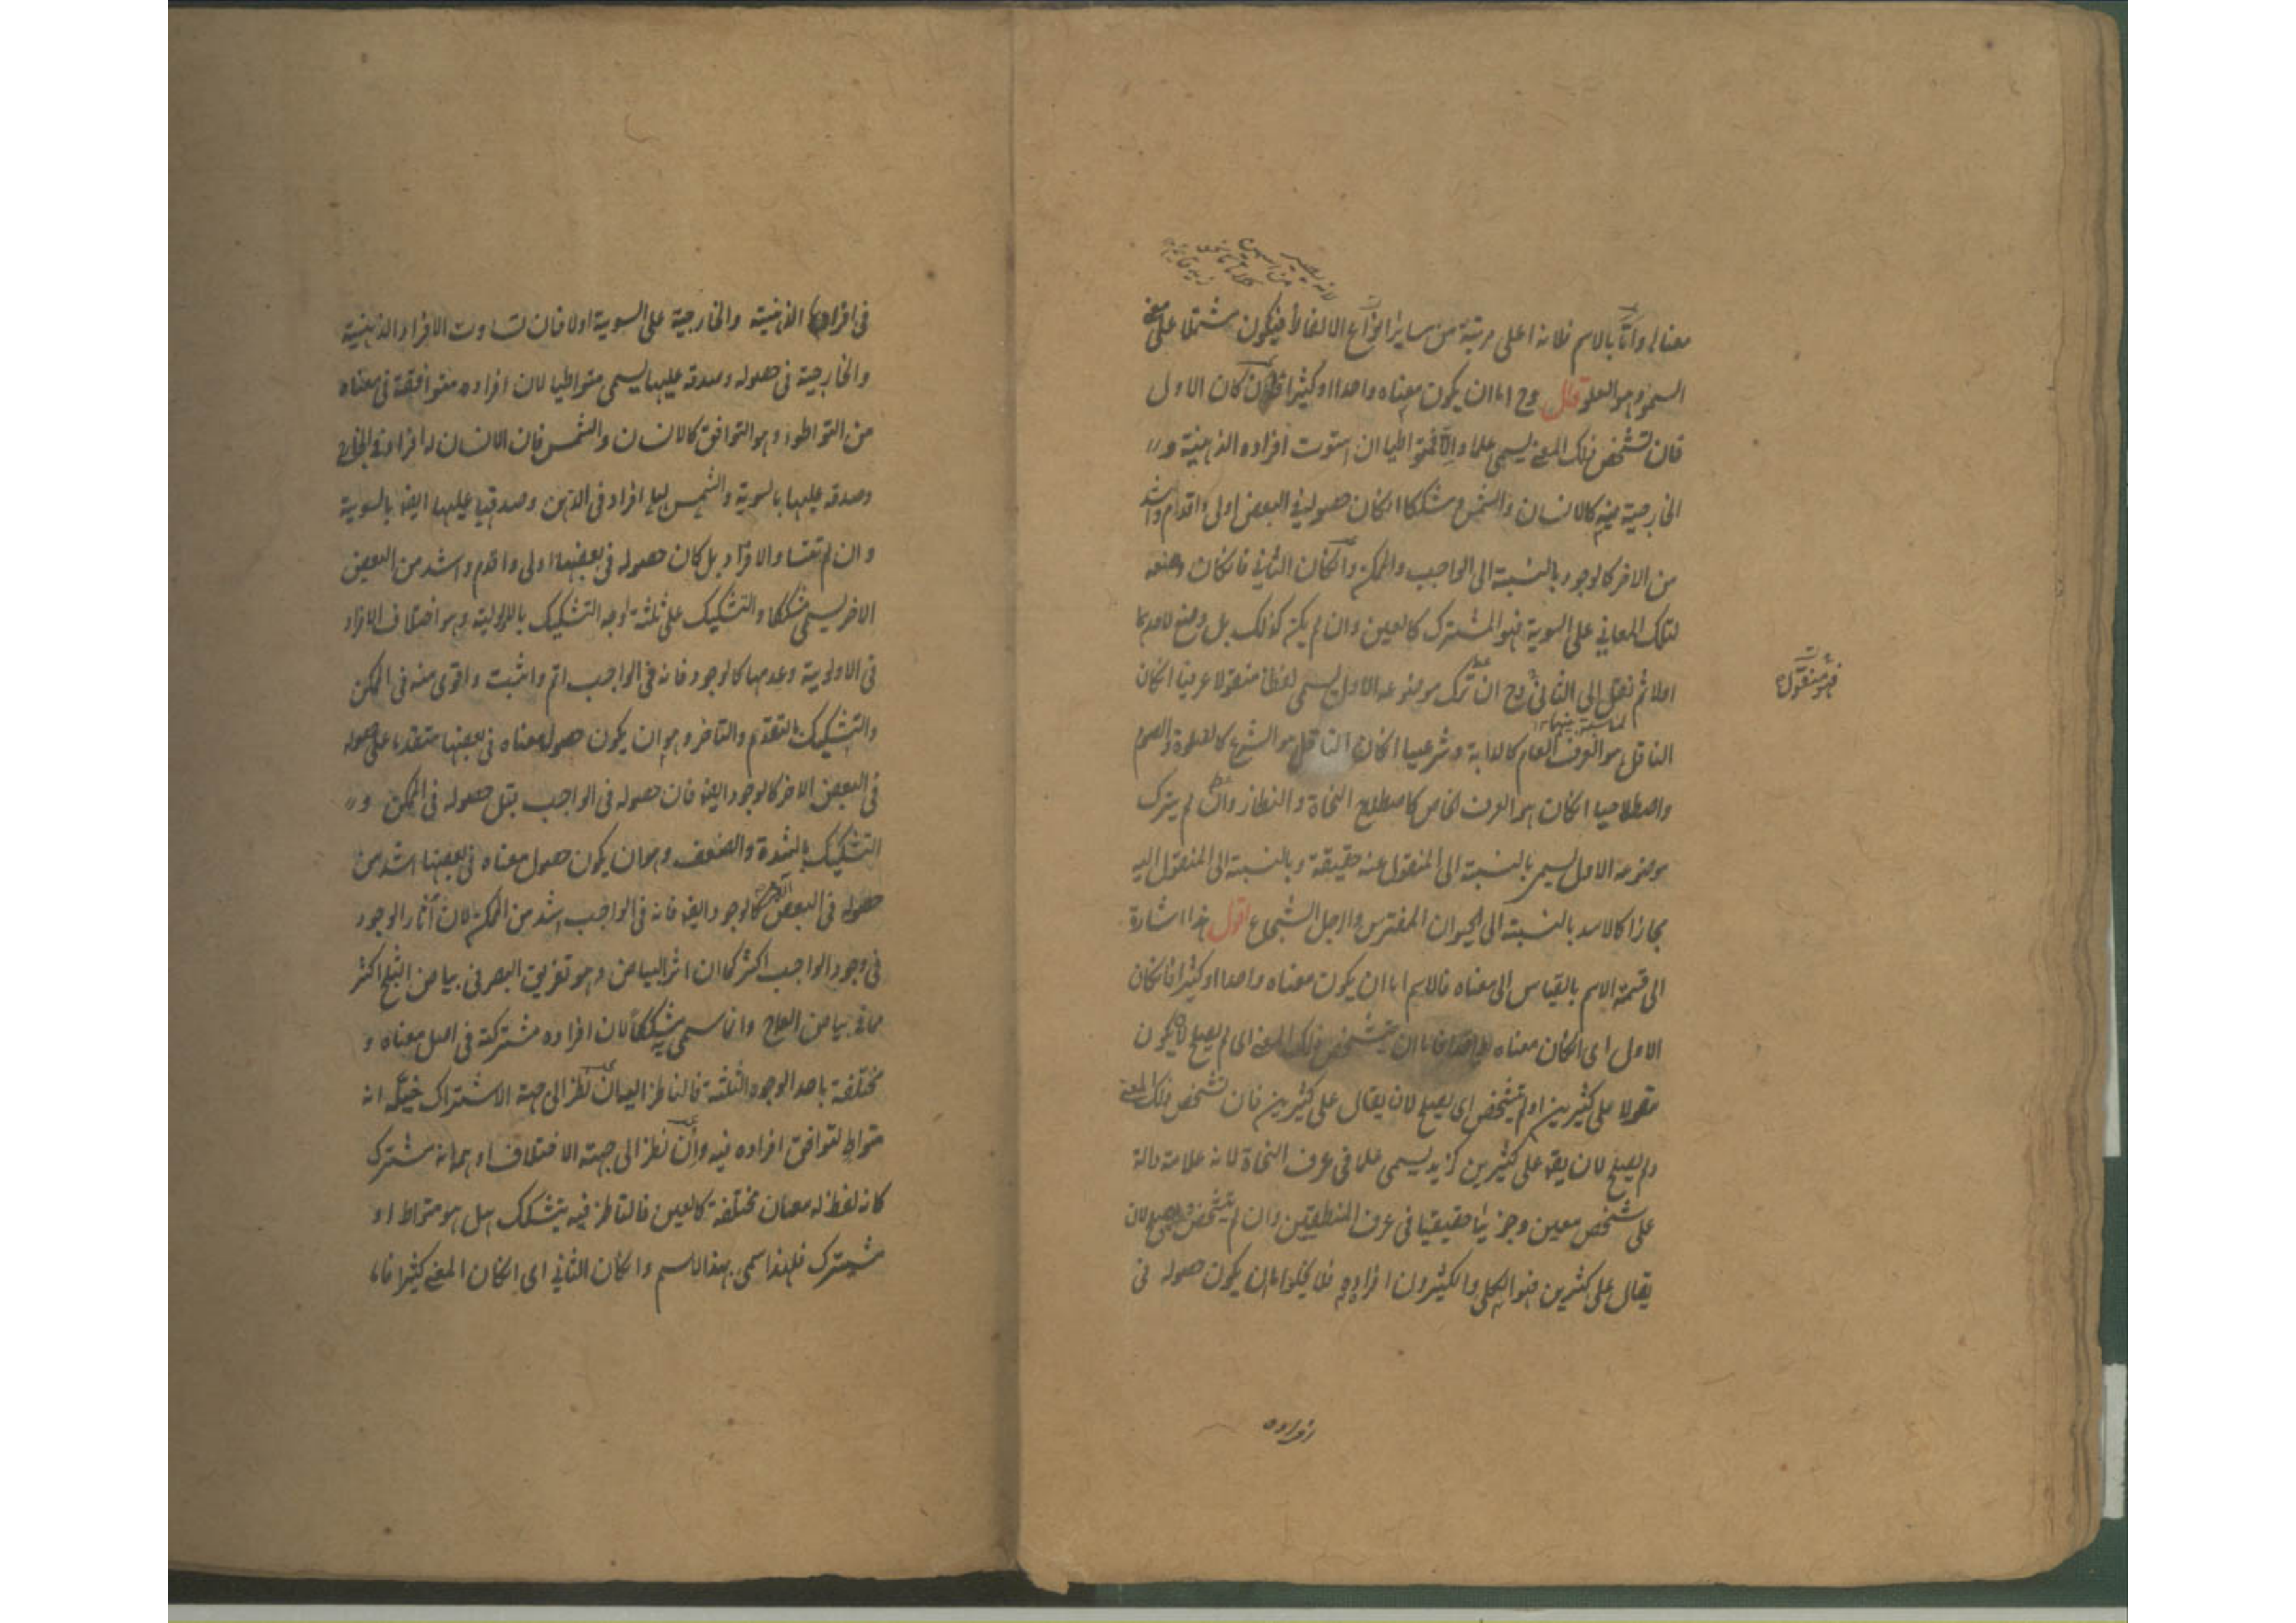 معناه واما بالاسم فلانه اعلى مرتبة من ساير انواع الالفاظ فيكون مشتملا على معنى
السمو وهو العلو قال وح اما ان يكون معناه واحدا او كثيرا فان كان الاول
فان تشخص ذلك المعنى يسمى علما والا فمتواطيا ان استوت افراده الذهنية و
الخارجية فيه كالانسان والشمس ومشككا انكان حصوله في البعض اولى واقدم واشد
من الاخر كالوجود بالنسبة الى الواجب والممكن وانكان الثاني فانكان وضعه
لتلك المعاني على السوية فهو المشترك كالعين وان لم يكن كذلك بل وضع لاحدهما
اولا ثم نقل الى الثاني وح ان ترك موضوعه الاول يسمى لفظا منقولا عرفيا انكان
لمناسبة بينهما
فهو منقول
الناقل هو العرف العام كالدابة وشرعيا انكان الناقل هو الشرع كالصلوة والصوم
واصطلاحيا انكان هو العرف الخاص كاصطلاح النحاة والنظار وان لم يترك
موضوعه الاول يسمى بالنسبة الى المنقول عنه حقيقة وبالنسبة الى المنقول اليه
مجازا كالاسد بالنسبة الى الحيوان المفترس والرجل الشجاع اقول هذا اشارة
الى قسمة الاسم بالقياس الى معناه فالاسم اما ان يكون معناه واحدا او كثيرا فانكان
الاول اى انكان معناه واحدا فاما ان يتشخص ذلك المعنى اى لم يصلح لان يكون
مقولا على كثيرين او لم يتشخص اى يصلح لان يقال على كثيرين فان تشخص ذلك المعنى
ولم يصلح لان يقه على كثيرين كزيد يسمى علما فى عرف النحاة لانه علامة دالة
على شخص معين وجزئيا حقيقيا فى عرف المنطقيين وان لم يتشخص وصلح لان
يقال على كثيرين فهو الكلى والكثيرون افراده فلا يخلو اما ان يكون حصوله فى
افراده
فى افراده الذهنية والخارجية على السوية اولا فان تساوت الافراد الذهنية
والخارجية فى حصوله وصدقه عليها يسمى متواطيا لان افراده متوافقة فى معناه
من التواطؤ وهو التوافق كالانسان والشمس فان الانسان له افراد فى الخارج
وصدقه عليها بالسوية والشمس لها افراد فى الذهن وصدقها عليها ايضا بالسوية
وان لم تتساو الافراد بل كان حصوله فى بعضها اولى واقدم واشد من البعض
الاخر يسمى مشككا والتشكيك على ثلثة اوجه التشكيك بالاولوية وهو اختلاف الافراد
فى الاولوية وعدمها كالوجود فانه فى الواجب اتم واثبت واقوى منه فى الممكن
والتشكيك بالتقدم والتاخر وهو ان يكون حصول معناه فى بعضها متقدما على حصوله
فى البعض الاخر كالوجود ايضا فان حصوله فى الواجب قبل حصوله فى الممكن و
التشكيك بالشدة والضعف وهو ان يكون حصول معناه فى بعضها اشد من
حصوله فى البعض الاخر كالوجود ايضا فانه فى الواجب اشد من الممكن لان آثار الوجود
فى وجود الواجب اكثر كما ان اثر البياض وهو تفريق البصر فى بياض الثلج اكثر
مما فى بياض العاج وانما سمى مشككا لان افراده مشتركة فى اصل معناه و
مختلفة باحد الوجوه الثلثة فالناظر اليه ان نظر الى جهة الاشتراك خيله انه
متواط لتوافق افراده فيه وان نظر الى جهة الاختلاف اوهمه انه مشترك
كانه لفظ له معان مختلفة كالعين فالناظر فيه يتشكك هل هو متواط او
مشترك فلهذا سمى بهذا الاسم وانكان الثاني اى انكان المعنى كثيرا فاما